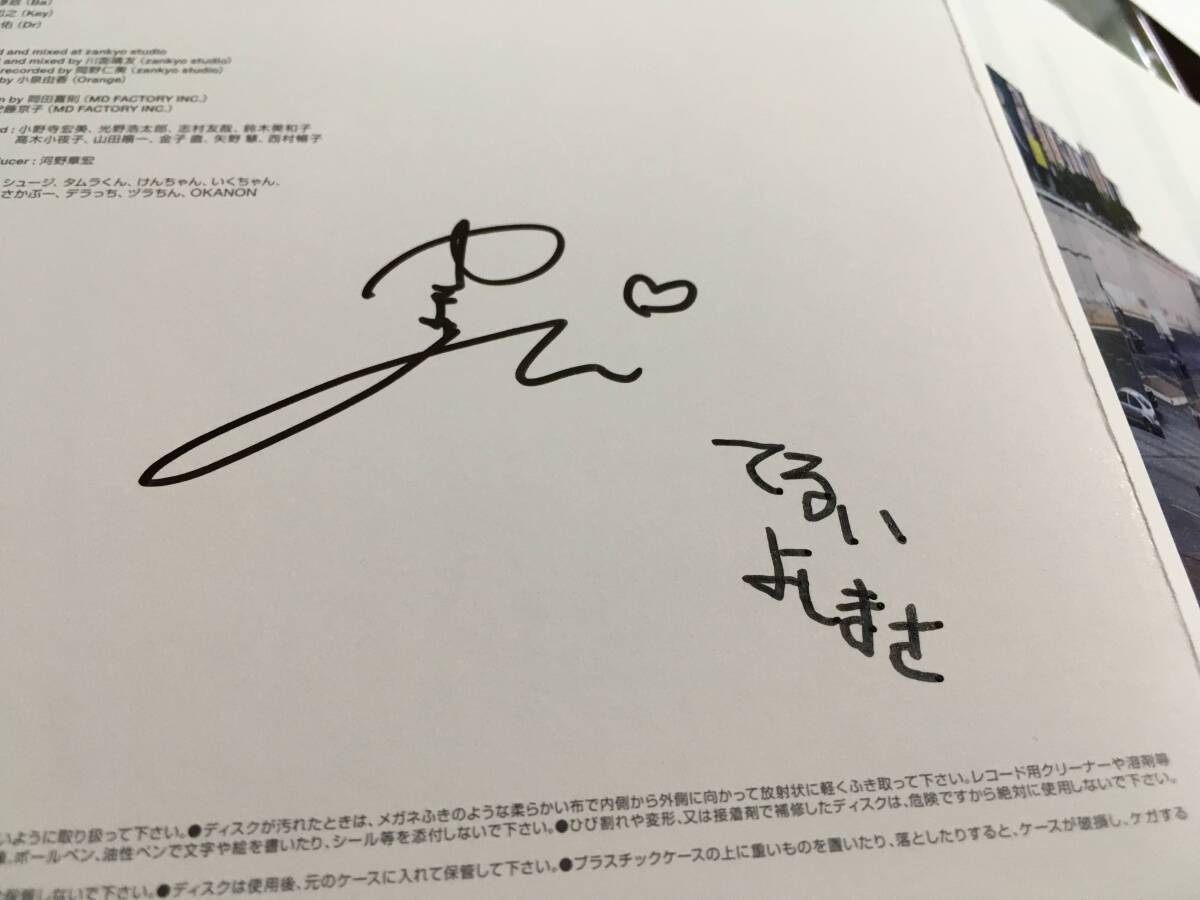 (Ba)
之(Key)
佑(Dr)
d and mixed at zankyo studio
and mixed by 川面晴友(zankyo studio)
recorded by 岡野仁美(zankyo studio)
by 小泉由香(Orange)
n by 岡田喜則(MD FACTORY INC.)
藤京子(MD FACTORY INC.)
d : 小野寺宏美、光野浩太郎、志村友哉、鈴木美和子
高木小夜子、山田順一、金子 直、矢野 慧、西村暢子
ucer : 河野章宏
シュージ、タムラくん、けんちゃん、いくちゃん、
さかぶー、デラっち、ヅラちん、OKANON
てるい
よしまさ
いように取り扱って下さい。●ディスクが汚れたときは、メガネふきのような柔らかい布で内側から外側に向かって放射状に軽くふき取って下さい。レコード用クリーナーや溶剤等
、ボールペン、油性ペンで文字や絵を書いたり、シール等を添付しないで下さい。●ひび割れや変形、又は接着剤で補修したディスクは、危険ですから絶対に使用しないで下さい。
保管しないで下さい。●ディスクは使用後、元のケースに入れて保管して下さい。●プラスチックケースの上に重いものを置いたり、落としたりすると、ケースが破損し、ケガする